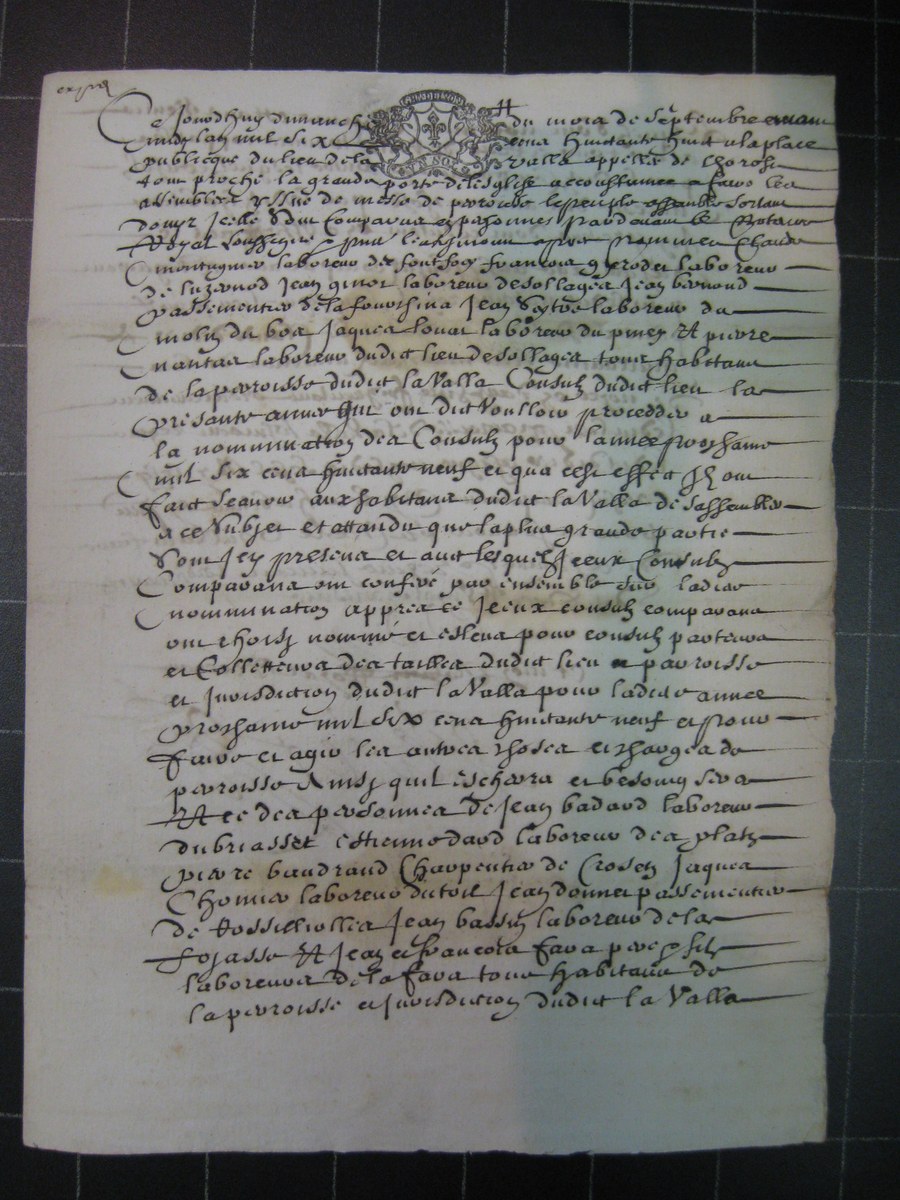 Ce Jourdhuy dimanche du mois de septembre avant
midy lan mil six cens huictante huict a la place
publicque du lieu de la valla appellee de
proche la grande porte de lesglise accoustumee a faire les
assemblees yssue de messe de perroisse le peuple assemblé sortant
dicelle sont comparus en personnes pardevant le notaire
Royal soussigné nommes Claude
montagnier laboreur de françois laboreur
de luzernod Jean ginot laboreur de sollages Jean bernond
passementier de la fourchina Jean laboreur du
molin du bos Jaques louat laboreur du piney Et pierre
nantas laboreur dudict lieu de sollages tous habitans
de la perroisse dudict la Valla Consulz dudict lieu la
presante annee Qui ont dict voulloir procedder a
la nomination des Consulz pour lannee prochaine
mil six cens huictante neuf et qua cest effect Ilz ont
faict scavoir aux habitans dudict la Valla de sassembler
a ce subjet et attandu que la plus grande partie
sont Icy presens et avec lesquelz Jceux Consulz
Comparans ont conferé par ensemble sur ladite
nomination appres ce Jceux consulz comparans
ont choisj nommé et esleus pour consulz parteurs
et Collecteurs des tailles dudict lieu perroisse
et Jurisdiction dudict la Valla pour ladite annee
prochaine mil six cens huictante neuf et pour
faire et agir les autres choses et charges de
perroisse Ainsj quil escherra et besoing sera
Et ce des personnes de Jean badard laboreur
du briasset Estienne dard laboreur des platz
pierre baudrand Charpentier de Crosetz Jaques
Thomier laboreur du toil Jean donnet passementier
de Rossilliolles Jean bassin laboreur de la
fojasse Et Jean et francois fara pere et filz
laboreurs de la fara tous habitans de
la perroisse et Jurisdiction dudict la Valla